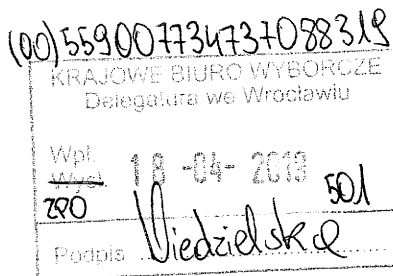 (00)559007734737088319
KRAJOWE BIURO WYBORCZE
Delegatura we Wrocławiu
Wpł. 18 -04- 2019
Wysł. 501
ZPO
Podpis Niedzielska